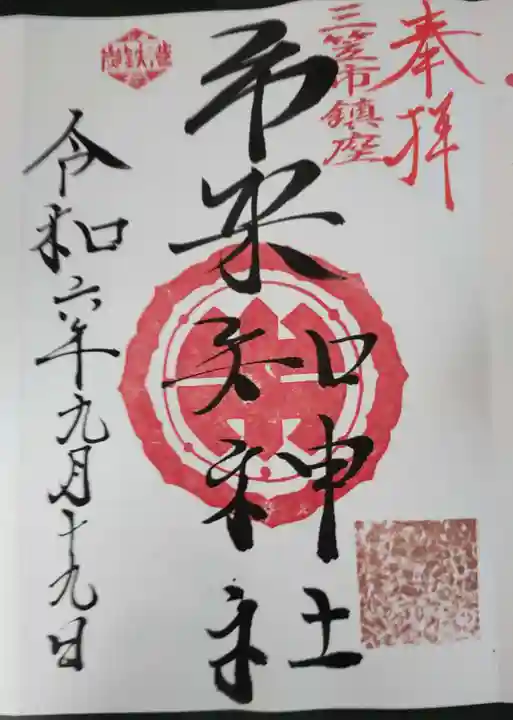 奉拝
三笠市鎮座
市来知神社
令和六年九月十九日